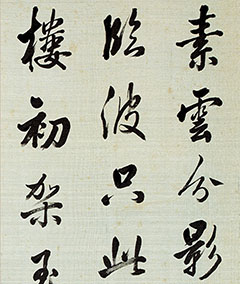 素雲分影
臨波只此
樓初架玉